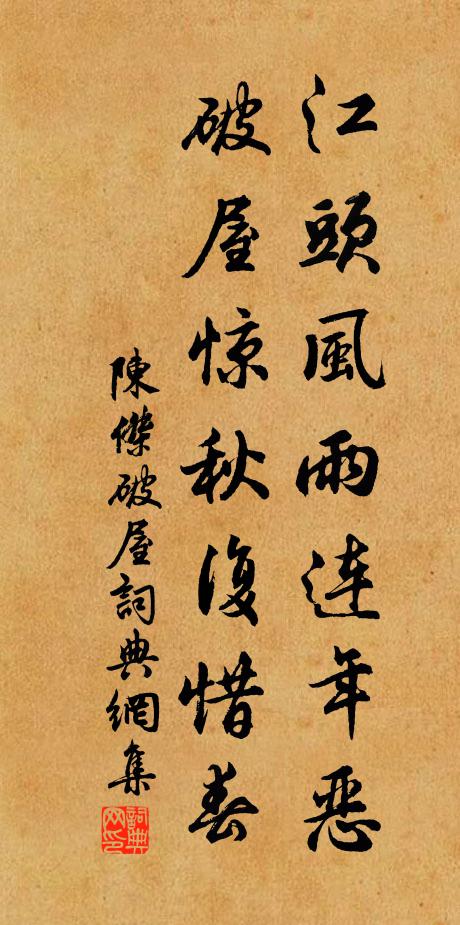 江頭風雨连年惡
破屋惊秋復惜春
陳傑破屋詞典網集
詞典网印